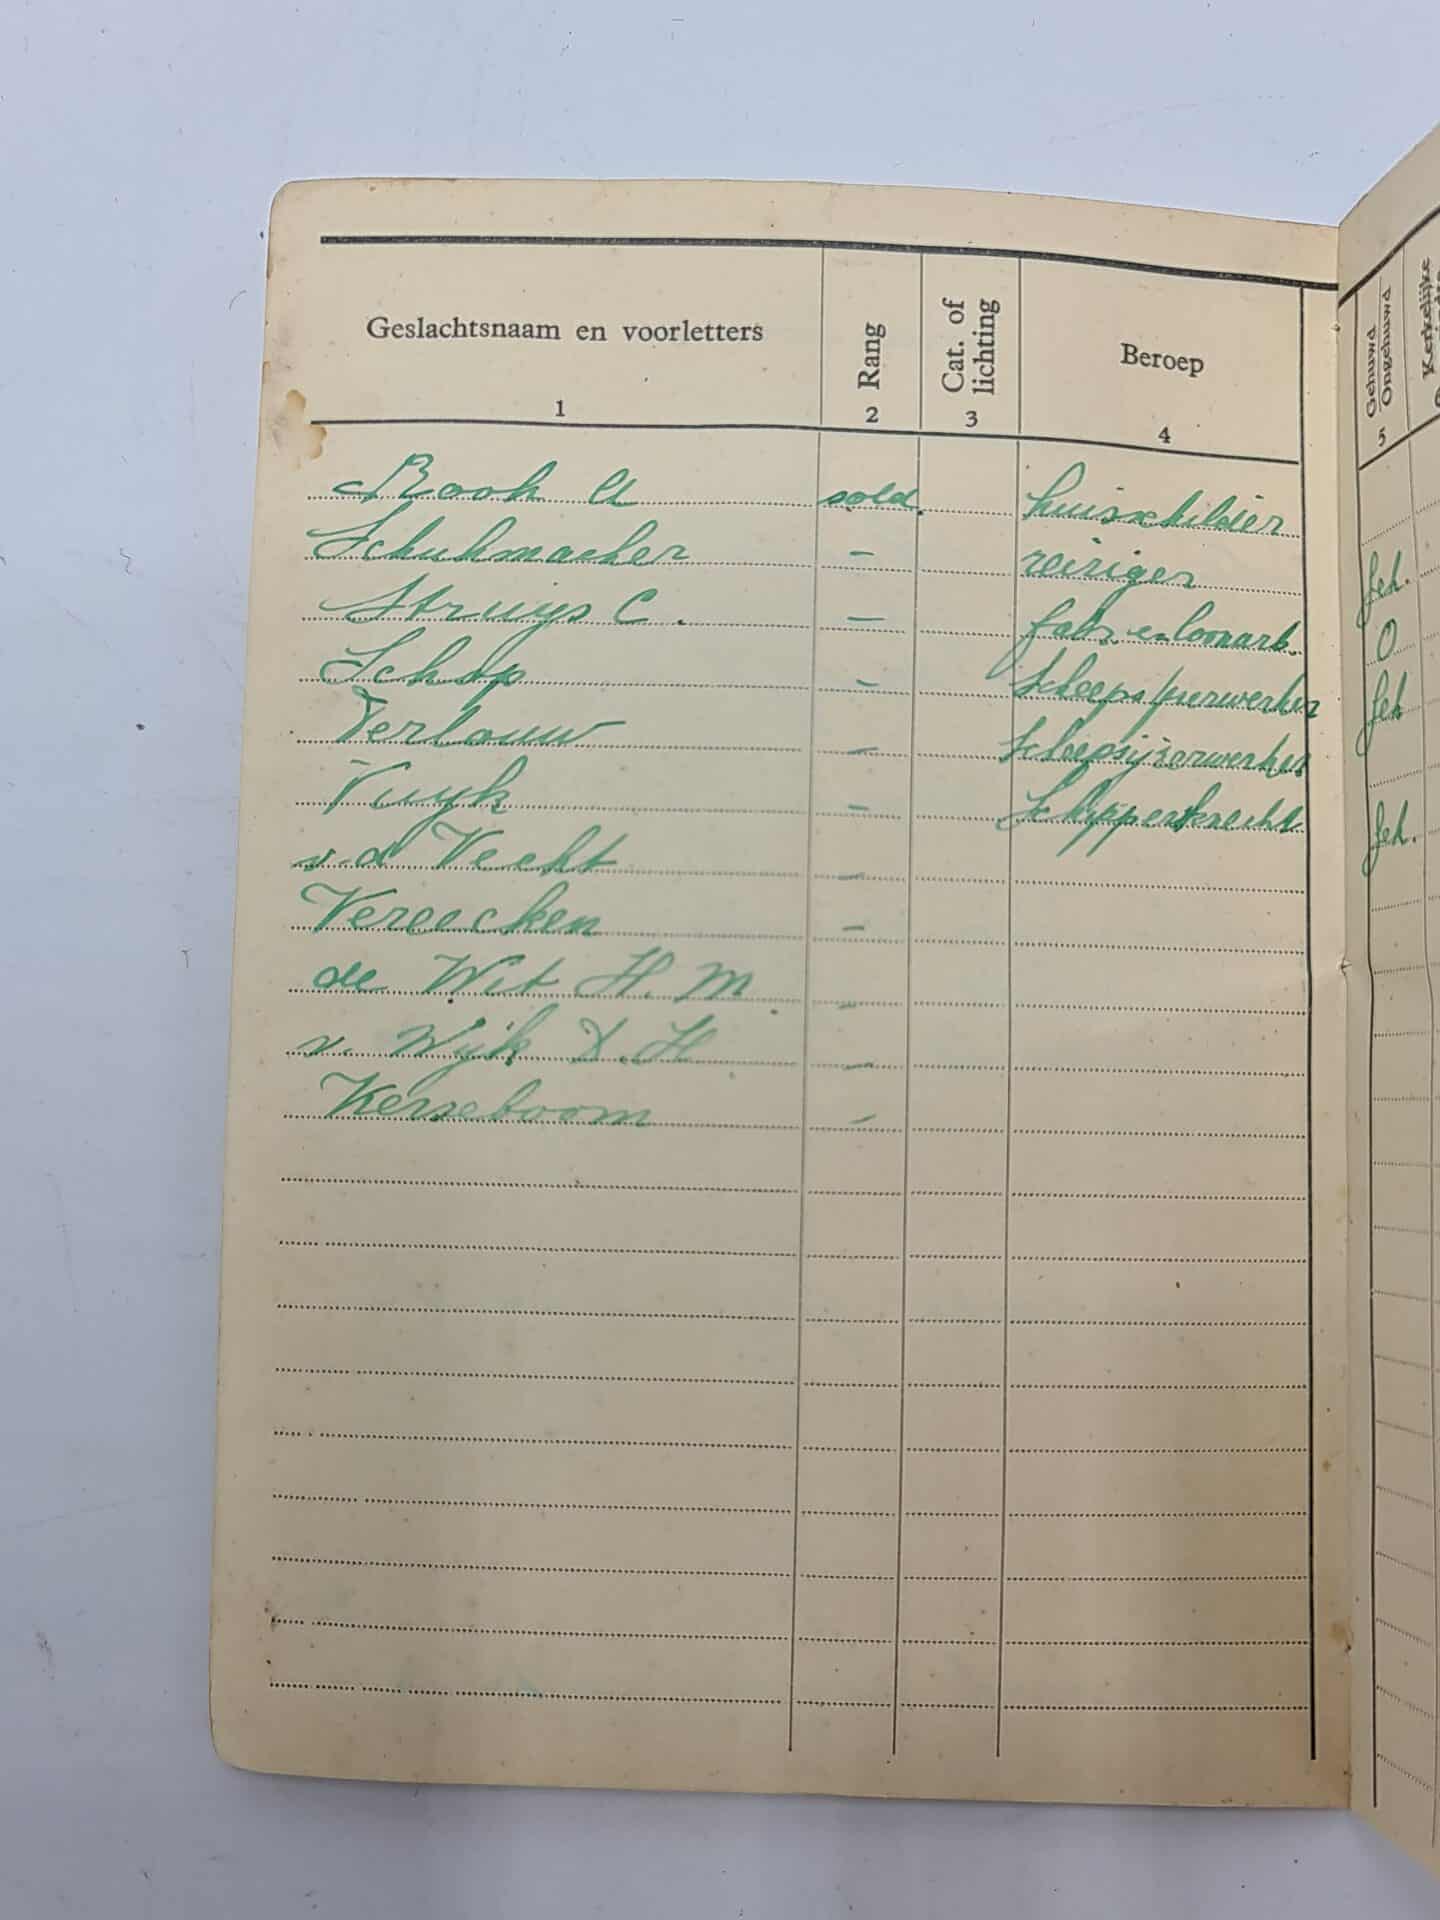 Geslachtsnaam en voorletters Rang Cat. of lichting Beroep Gehuwd Ongehuwd Kerkelijke
1 2 3 4 5
Rook A sold. huisschilder
Schuhmacher – reiziger Geh.
Struijs C. – O
Schop – Scheepsijzerwerker Geh
Verlouw – Scheepsijzerwerker
Vuyk – Schippersknecht Geh.
v.d Vecht –
Vereecken –
de Wit H. M. –
v. Wijk D. H. –
Kerseboom –